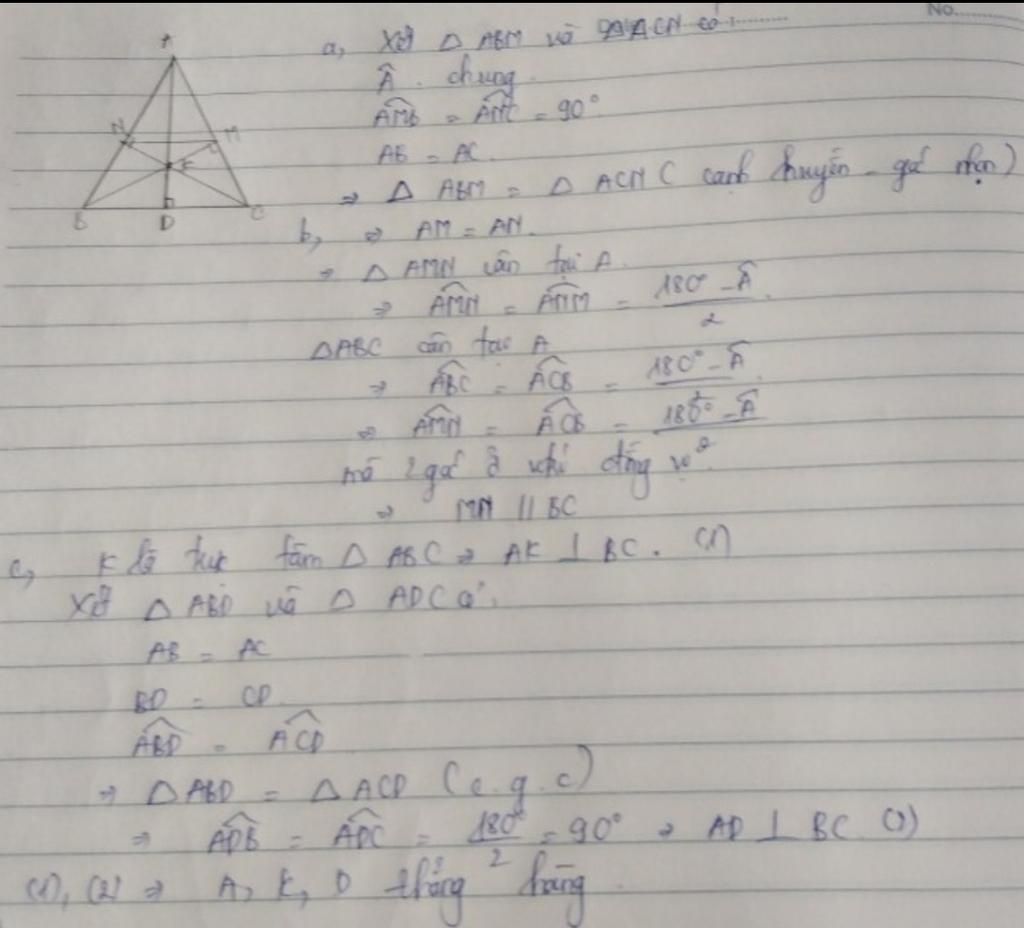 No.........
A
N
M
K
B
D
C
a, Xét △ ABM và △ ACN có:
Â chung
AMB = ANC = 90°
AB = AC.
⇒ △ ABM = △ ACN ( cạnh huyền - góc nhọn)
b, ⇒ AM = AN.
⇒ △ AMN cân tại A.
⇒ AMN = ANM = (180° - Â)/2
△ABC cân tại A
⇒ ABC = ACB = (180° - Â)/2
⇒ AMN = ACB = (180° - Â)/2
mà 2 góc ở vị trí đồng vị
⇒ MN // BC
c, K là trực tâm △ ABC ⇒ AK ⊥ BC. (1)
Xét △ ABD và △ ADC có:
AB = AC
BD = CD
ABD = ACD
⇒ △ ABD = △ ACD (c.g.c)
⇒ ADB = ADC = 180°/2 = 90° ⇒ AD ⊥ BC (2)
(1), (2) ⇒ A, K, D thẳng hàng.